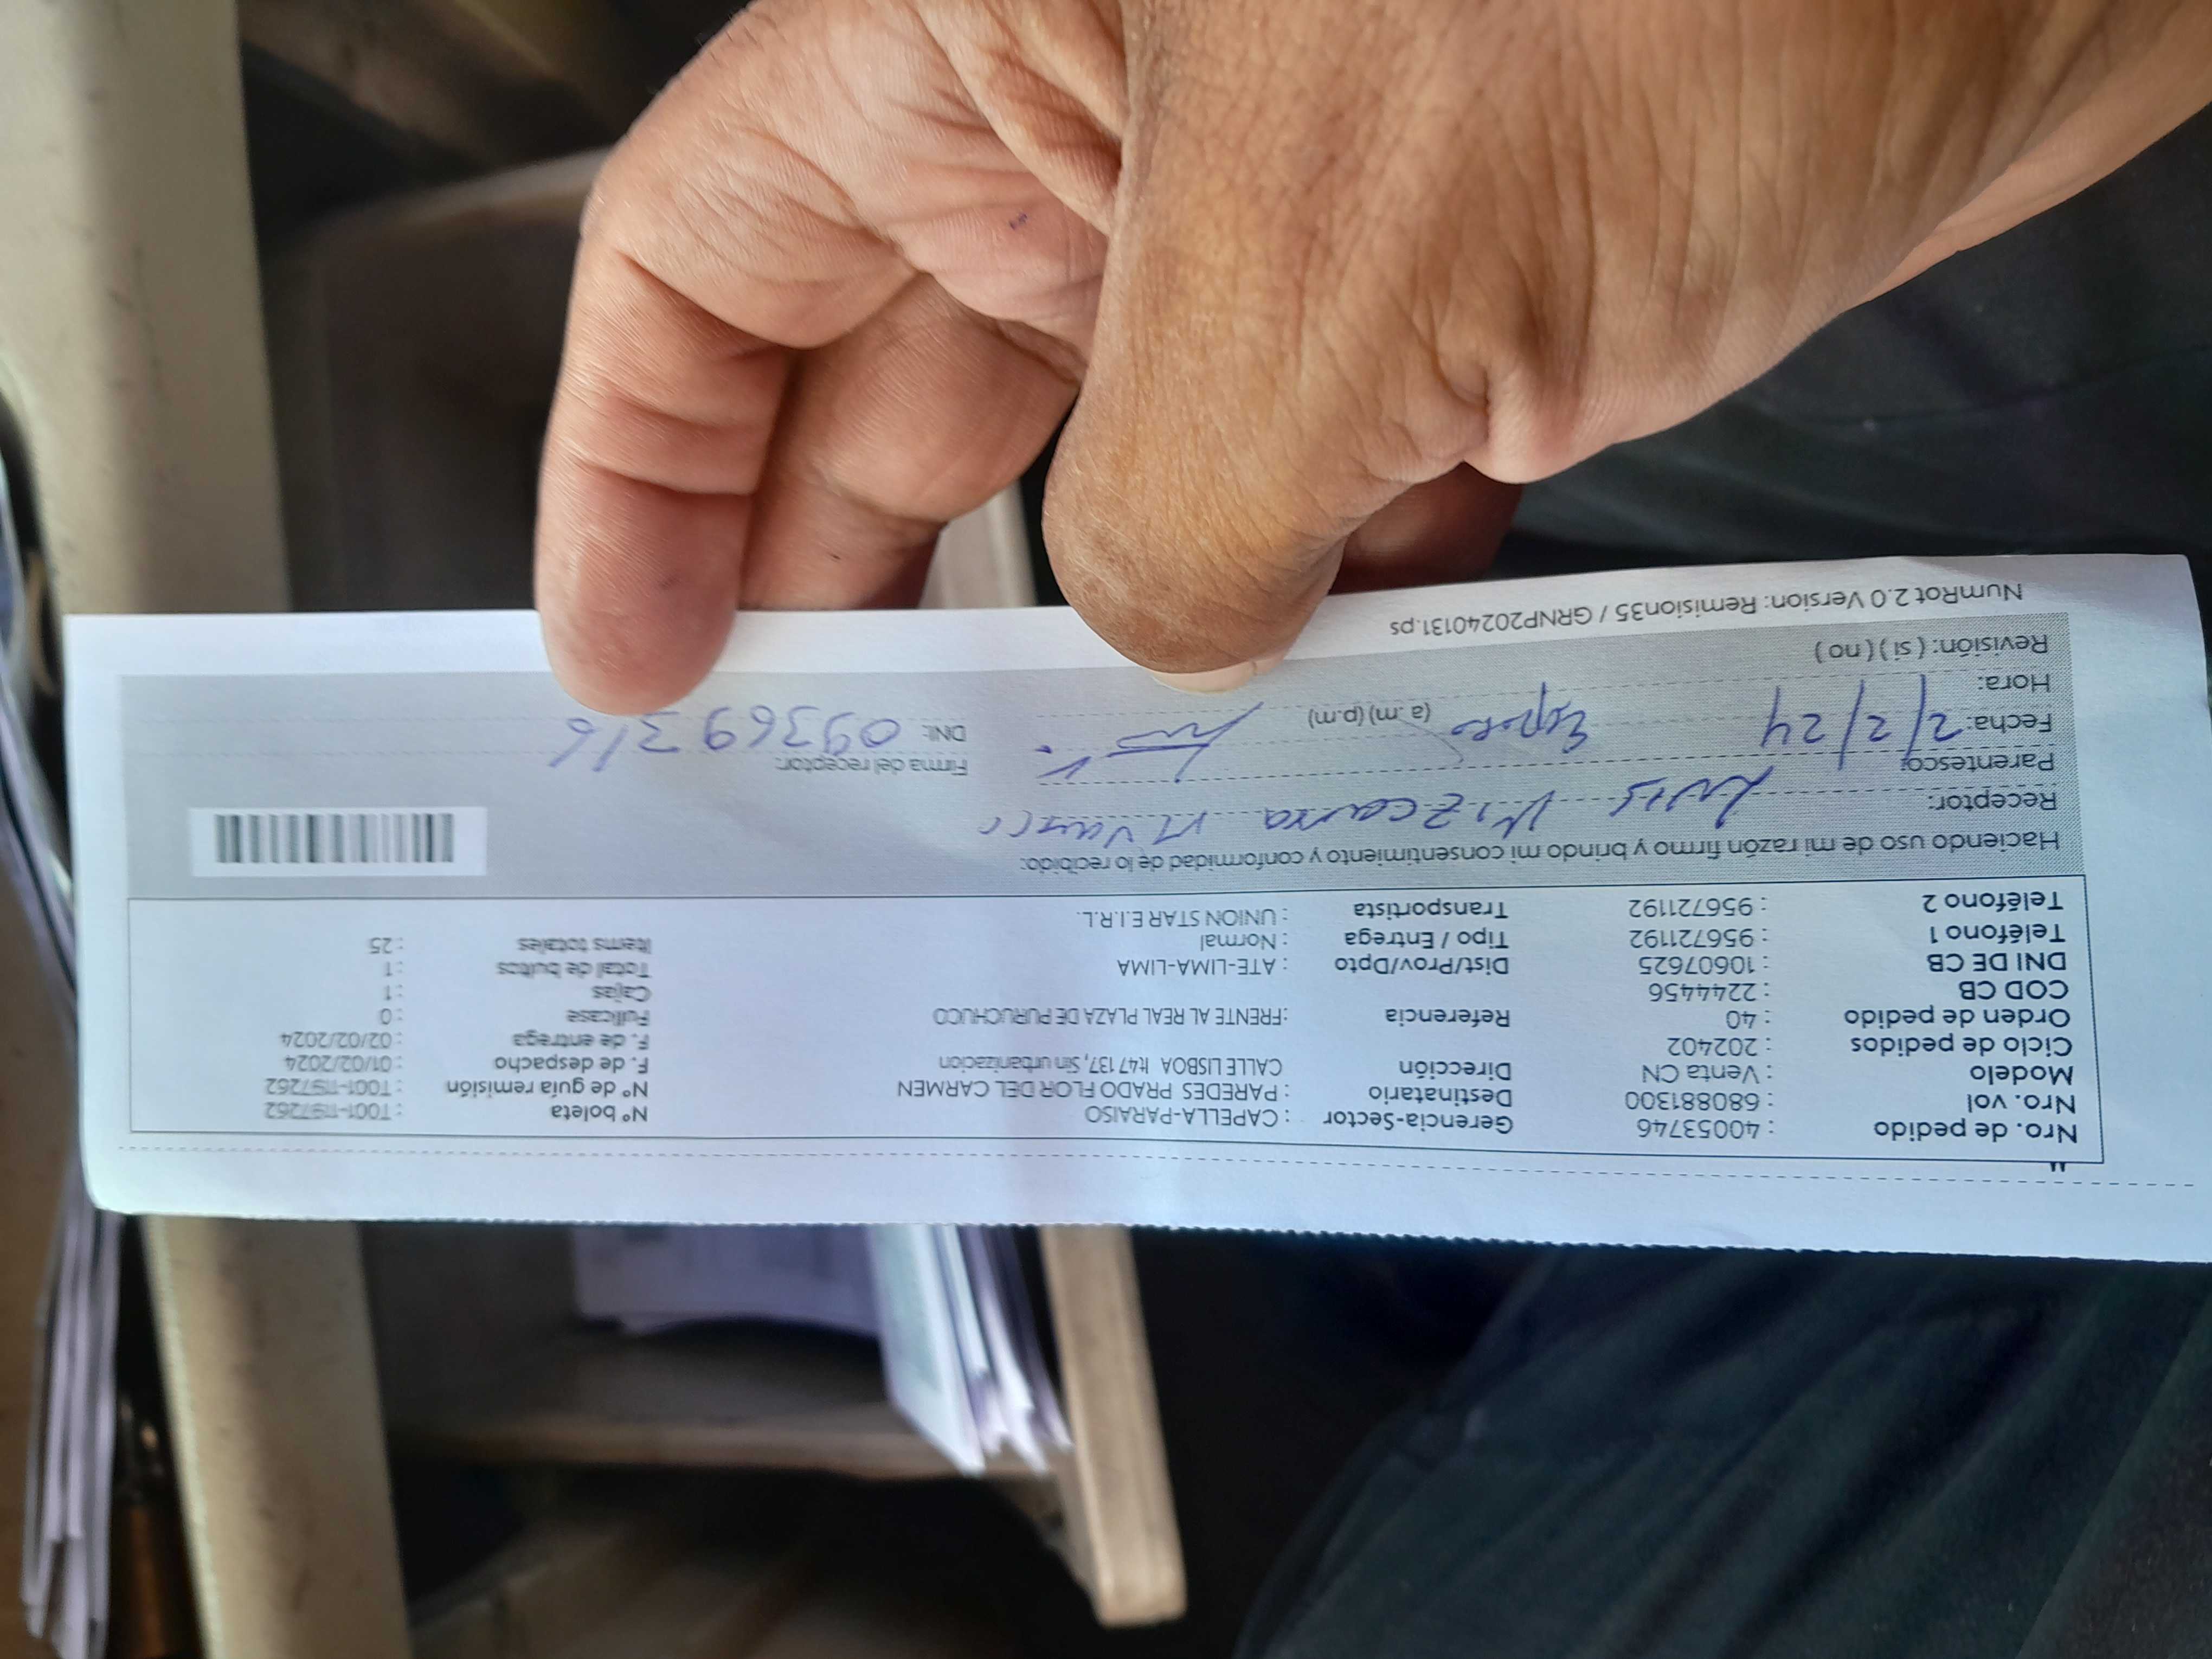 Nro. de pedido : 40053746 Gerencia-Sector : CAPELLA-PARAISO N° boleta : T001-1197262
Nro. vol : 680881300 Destinatario : PAREDES PRADO FLOR DEL CARMEN N° de guía remisión : T001-1197262
Modelo : Venta CN Dirección CALLE LISBOA lt47 137, Sin urbanizacion F. de despacho : 01/02/2024
Ciclo de pedidos : 202402 F. de entrega : 02/02/2024
Orden de pedido : 40 Referencia :FRENTE AL REAL PLAZA DE PURUCHUCO Fullcase : 0
COD CB : 2244456 Cajas : 1
DNI DE CB : 10607625 Dist/Prov/Dpto : ATE-LIMA-LIMA Total de bultos : 1
Teléfono 1 : 956721192 Tipo / Entrega : Normal Items totales : 25
Teléfono 2 : 956721192 Transportista : UNION STAR E.I.R.L.
Haciendo uso de mi razón firmo y brindo mi consentimiento y conformidad de lo recibido:
Receptor: Luis Vizcarra
Parentesco: Firma del receptor:
Fecha: 2/2/24 Esposo DNI: 09369316
Hora: (a.m) (p.m)
Revisión: ( sí ) ( no )
NumRot 2.0 Version: Remision35 / GRNP20240131.ps